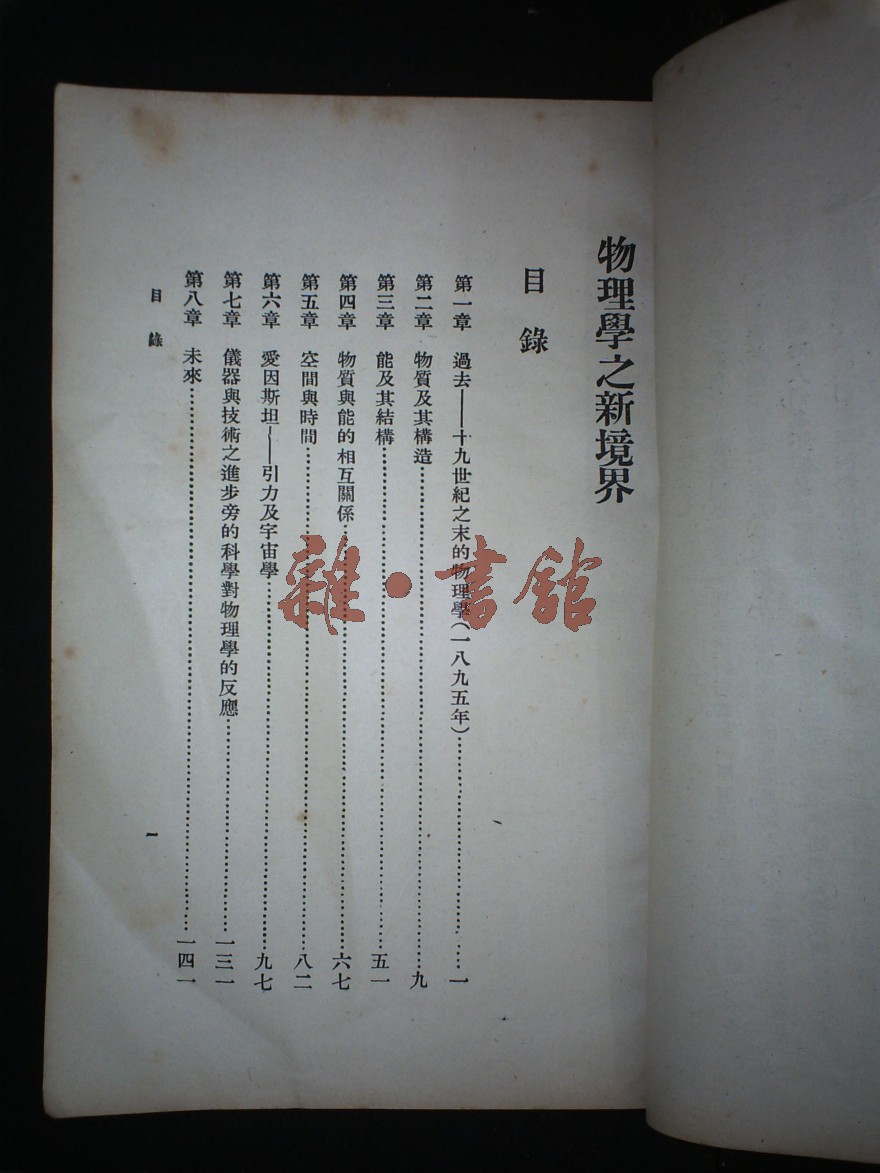 物理學之新境界
目錄
第一章 過去——十九世紀之末的物理學(一八九五年)…………一
第二章 物質及其構造…………九
第三章 能及其結構…………五一
第四章 物質與能的相互關係…………六七
第五章 空間與時間…………八二
第六章 愛因斯坦——引力及宇宙學…………九七
第七章 儀器與技術之進步旁的科學對物理學的反應…………一三一
第八章 未來…………一四一
目錄 一
雜·書館